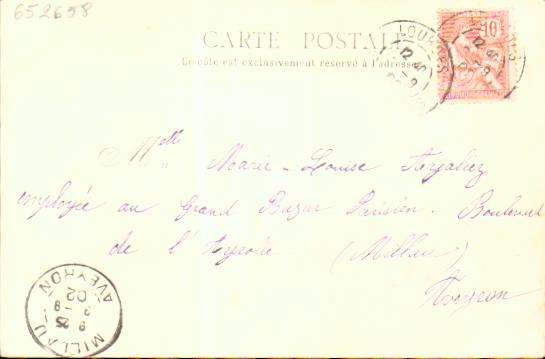 652658
CARTE POSTALE
Ce côté est exclusivement réservé à l'adresse
10
LOURDES
Melle Marie-Louise
employée au Grand Bazar Parisien. Boulevard
de l'Ayrolle (Millau)
Aveyron
MILLAU
AVEYRON
02